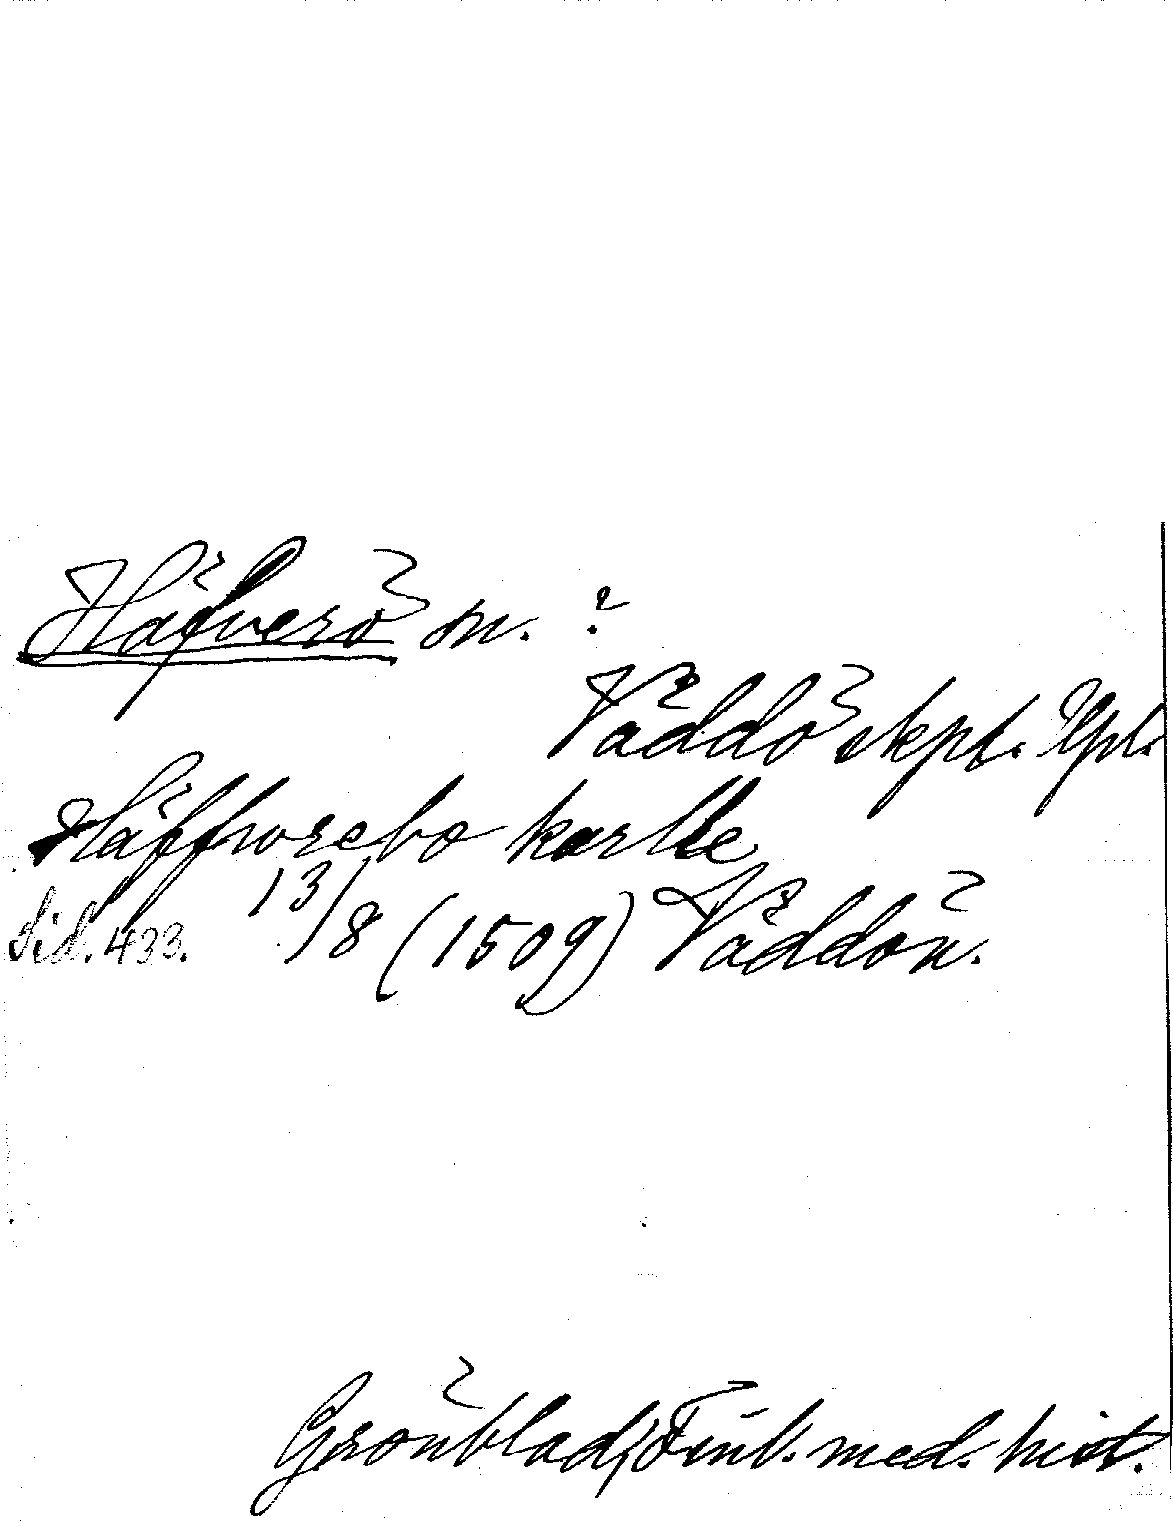 Häfverö sn. ?
Väddö skpl. Upl.
Häffworebo karlle
Sid. 433. 13/8 (1509) Väddön.
Grönblad, Finl. med. hist.